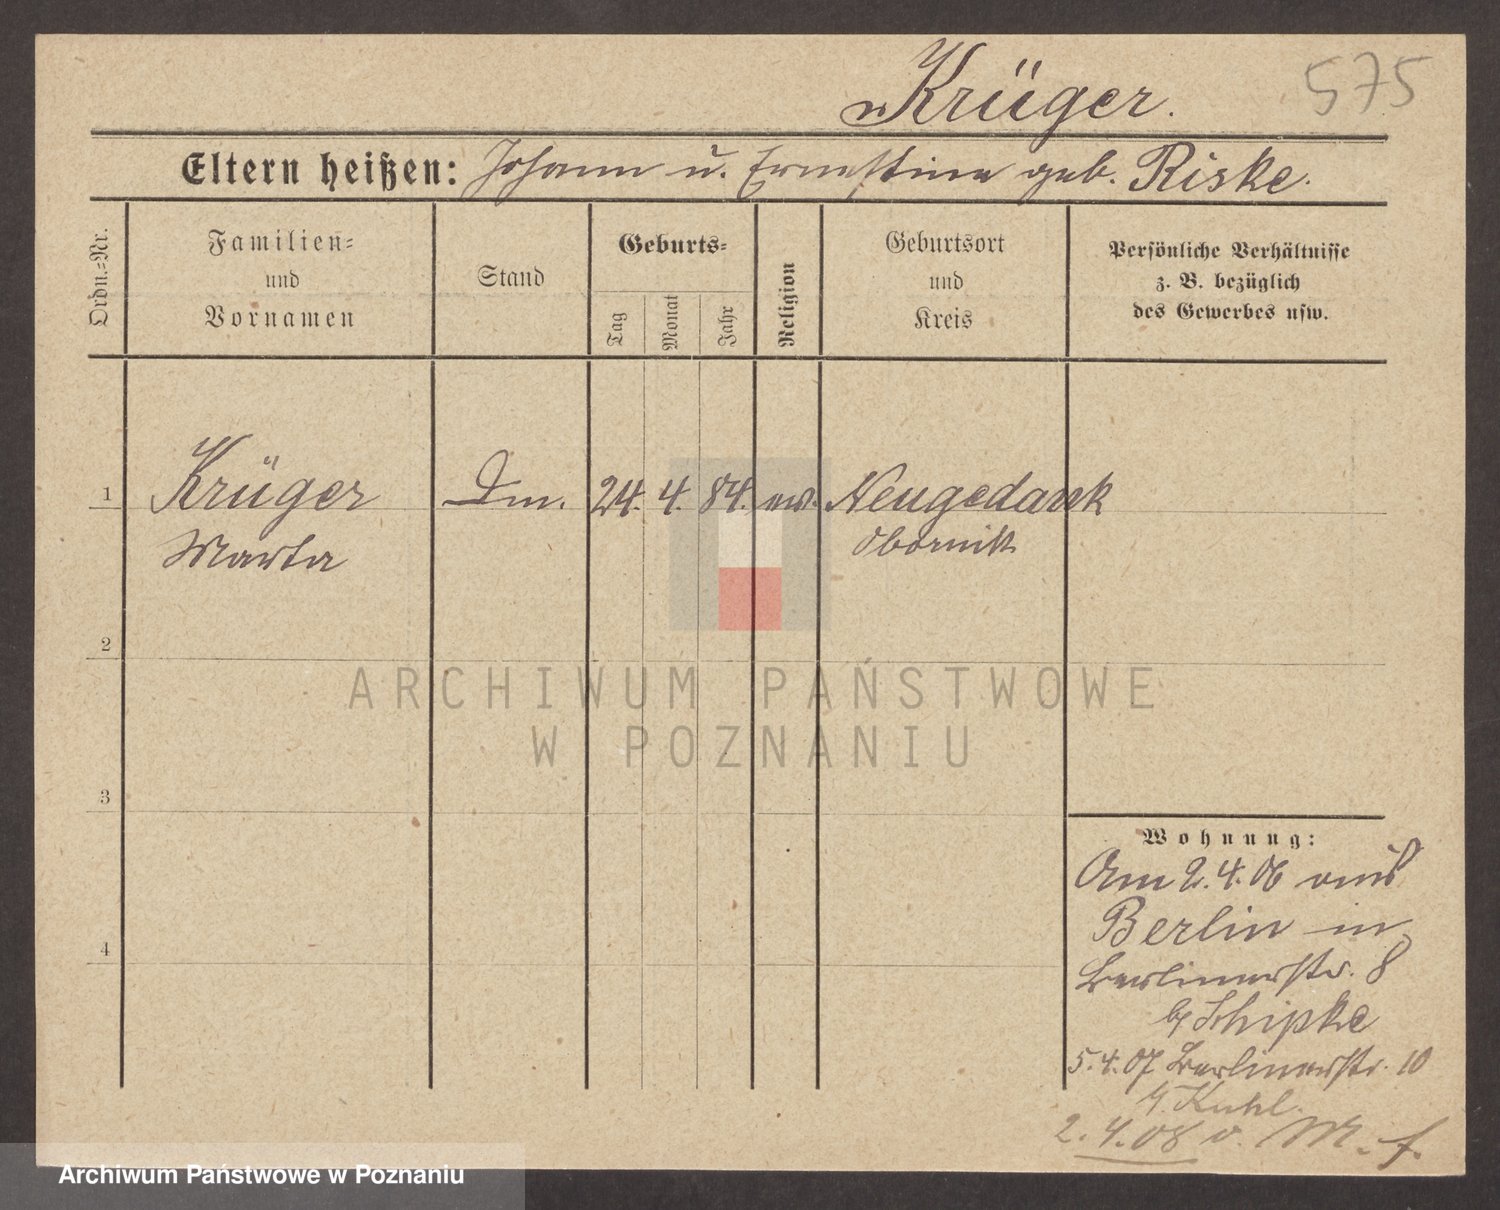 Krüger.
575
Eltern heißen: Johann u. Ernestine geb. Riske.
Ordn.=Nr.
Familien=
und
Vornamen
Stand
Geburts=
Tag
Monat
Jahr
Religion
Geburtsort
und
Kreis
Persönliche Verhältnisse
z. B. bezüglich
des Gewerbes usw.
1
Krüger
Dm.
24.
4.
84.
ev.
Neugedank
Marta
Obornik
2
ARCHIWUM PAŃSTWOWE
W POZNANIU
3
4
Wohnung:
Am 2.4.06 aus
Berlin in
Berlinerstr. 8
b/ Schipke
5.4.07 Berlinerstr. 10
b/ Kuhl.
2.4.08 v. M. f.
Archiwum Państwowe w Poznaniu